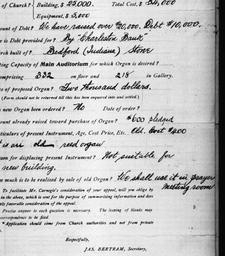 of Church? Building, $29,000. Total Cost, $32,000
Equipment, $3,000
ount of Debt? We have raised over $20,000. Debt $10,000.
is Debt provided for? By Charleston Bank
rch built of? Bedford (Indiana) Stone
ting Capacity of Main Auditorium for which Organ is desired?
omprising 332 on floor and 218 in Gallery.
of proposed Organ? Two thousand dollars.
(Form should not be returned till this has been enquired into and stated.)
new Organ been ordered? No Date of order?
ount already raised toward purchase of Organ? $600 pledged
ticulars of present Instrument, Age, Cost Price, Etc. Old. Cost $200
is an old reed organ
son for displacing present Instrument? Not suitable for
new building.
much is to be realized by sale of old Organ? We shall use it in prayer
meeting room
To facilitate Mr. Carnegie's consideration of your appeal, will you oblige by
in the above, which is sent for the purpose of summarising information and thus
nely favorable consideration of the appeal.
Precise answer to each question is necessary. The leaving of blanks may
correspondence to be filed.
*Application should come from Church authorities and not from private
Respectfully,
JAS. BERTRAM, Secretary,